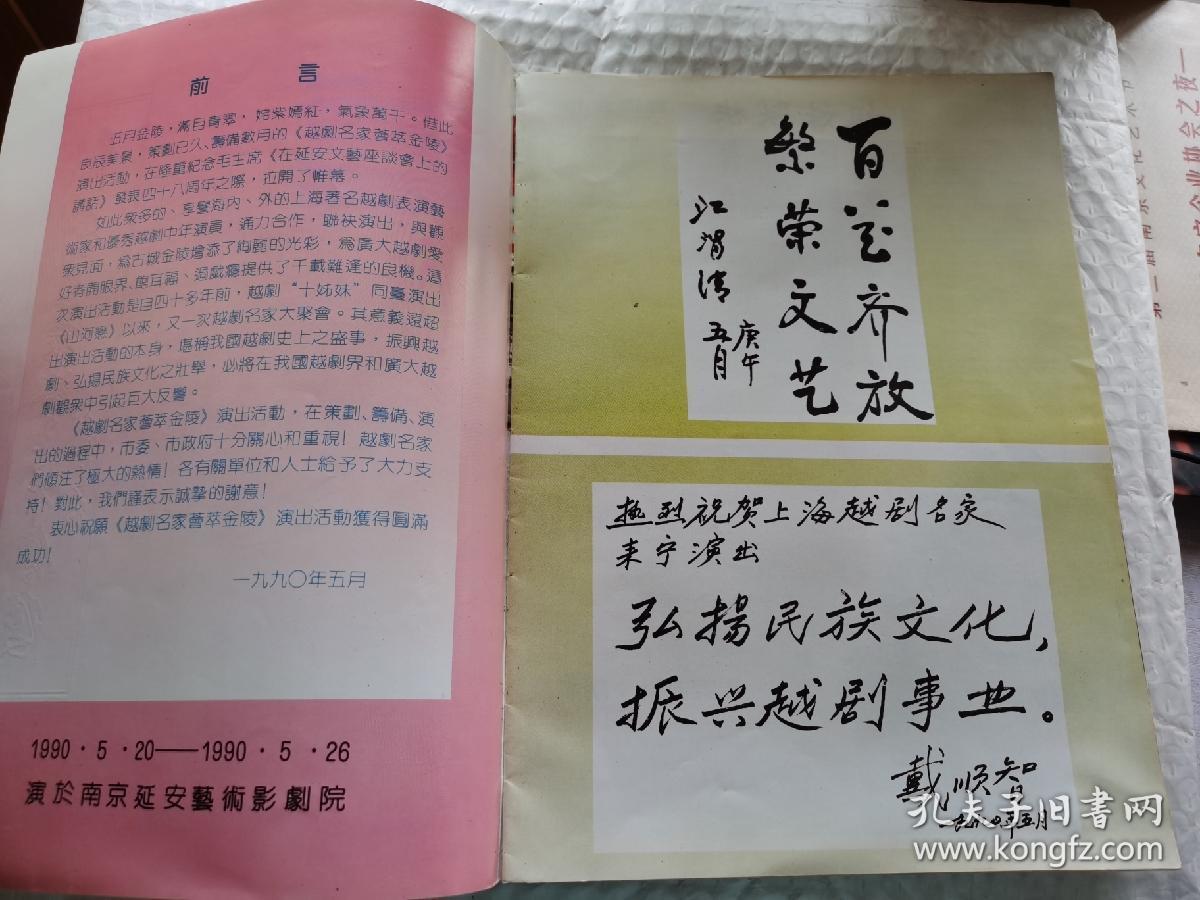 前 言
五月金陵，滿目青翠，姹紫嫣紅，氣象萬千。借此
良辰美景，策劃已久、籌備數月的《越劇名家薈萃金陵》
演出活動，在隆重紀念毛主席《在延安文藝座談會上的
講話》發表四十八周年之際，拉開了帷幕。
如此衆多的、享譽海内、外的上海著名越劇表演藝
術家和優秀越劇中年演員，通力合作，聯袂演出，與觀
衆見面，爲古城金陵增添了絢麗的光彩，爲廣大越劇愛
好者開眼界、飽耳福、過戲癮提供了千載難逢的良機。這
次演出活動是自四十多年前，越劇“十姊妹”同臺演出
《山河戀》以來，又一次越劇名家大聚會。其意義遠超
出演出活動的本身，堪稱我國越劇史上之盛事，振興越
劇、弘揚民族文化之壯舉，必將在我國越劇界和廣大越
劇觀衆中引起巨大反響。
《越劇名家薈萃金陵》演出活動，在策劃、籌備、演
出的過程中，市委、市政府十分關心和重視！越劇名家
們傾注了極大的熱情！各有關單位和人士給予了大力支
持！對此，我們謹表示誠摯的謝意！
衷心祝願《越劇名家薈萃金陵》演出活動獲得圓滿
成功！
一九九〇年五月
1990·5·20——1990·5·26
演於南京延安藝術影劇院
百花齐放
繁荣文艺
江渭清
庚午
五月
热烈祝贺上海越剧名家
来宁演出
弘揚民族文化，
振兴越剧事业。
戴顺智
一九九〇年五月
孔夫子旧书网
www.kongfz.com